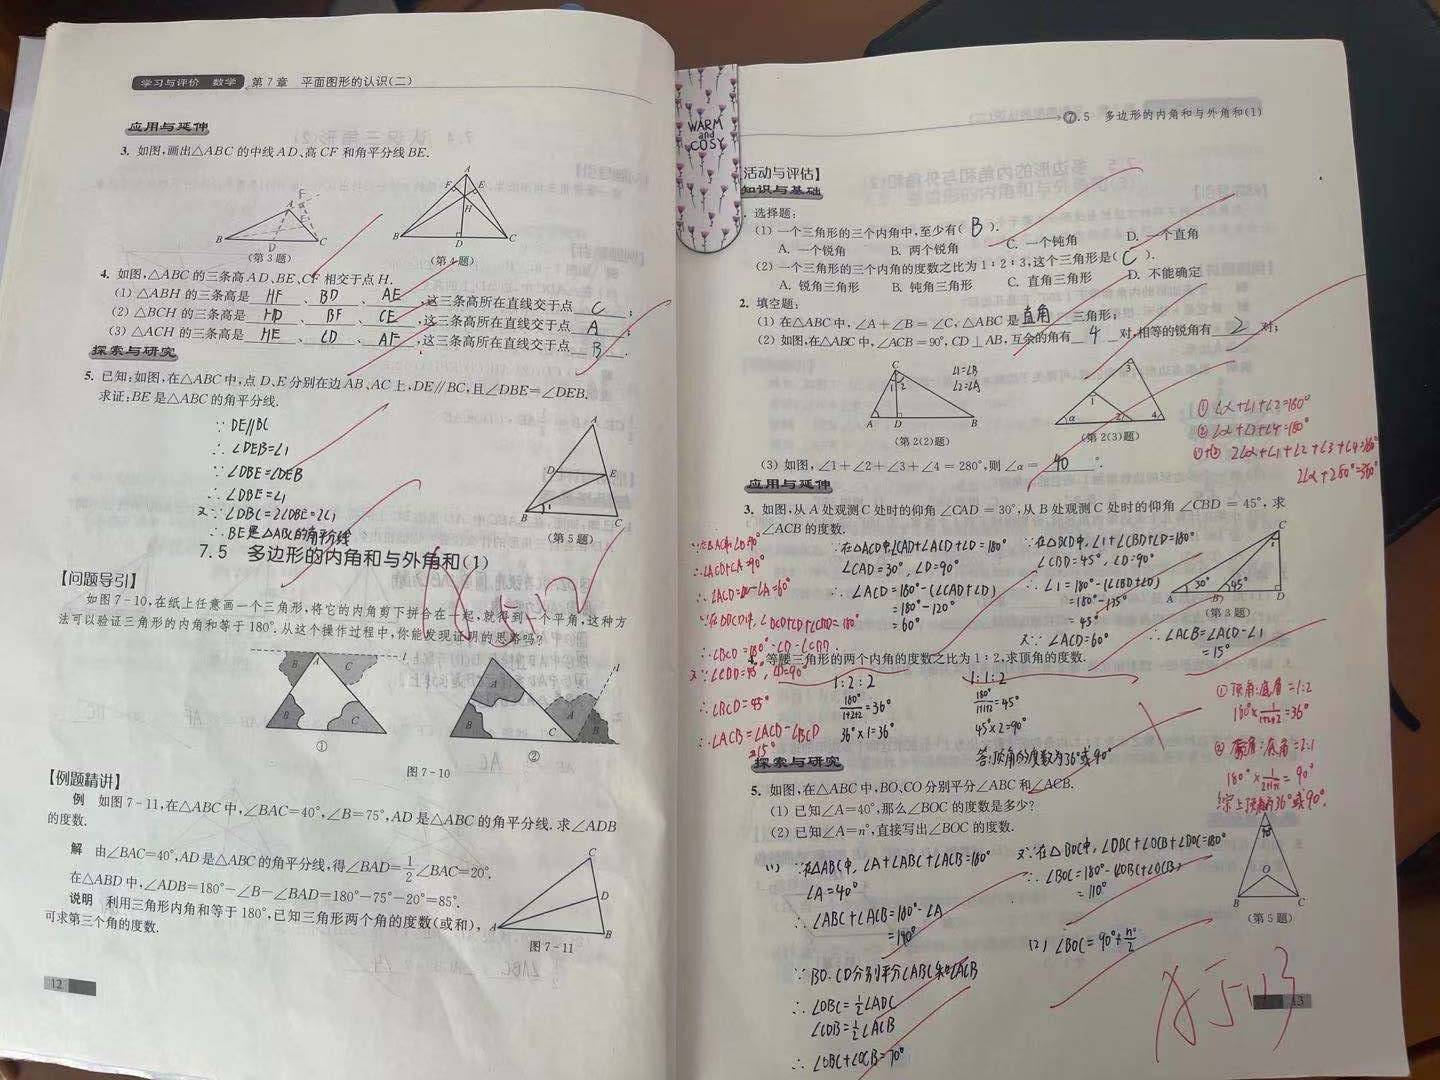 学习与评价 数学 第7章 平面图形的认识(二)
应用与延伸
3. 如图,画出△ABC的中线AD、高CF和角平分线BE.
A
B
C
D
E
F
(第3题)
A
F
E
H
B
D
C
(第4题)
4. 如图,△ABC的三条高AD、BE、CF相交于点H.
(1) △ABH的三条高是 HF 、 BD 、 AE ,这三条高所在直线交于点 C ;
(2) △BCH的三条高是 HD 、 BF 、 CE ,这三条高所在直线交于点 A ;
(3) △ACH的三条高是 HE 、 CD 、 AF ,这三条高所在直线交于点 B .
探索与研究
5. 已知:如图,在△ABC中,点D、E分别在边AB、AC上,DE∥BC,且∠DBE=∠DEB.
求证:BE是△ABC的角平分线.
∵ DE∥BC
∴ ∠DEB=∠1
∵ ∠DBE=∠DEB
∴ ∠DBE=∠1
又∵ ∠DBC=2∠DBE=2∠1
∴ BE是△ABC的角平分线
A
D
E
1
B
C
(第5题)
7.5 多边形的内角和与外角和(1)
【问题导引】
如图7-10,在纸上任意画一个三角形,将它的内角剪下拼合在一起,就得到一个平角,这种方
法可以验证三角形的内角和等于180°.从这个操作过程中,你能发现证明的思路吗?
B A C l
B C
①
A l
A
B C B
②
图7-10
【例题精讲】
例 如图7-11,在△ABC中,∠BAC=40°,∠B=75°,AD是△ABC的角平分线.求∠ADB
的度数.
解 由∠BAC=40°,AD是△ABC的角平分线,得∠BAD=1/2∠BAC=20°.
在△ABD中,∠ADB=180°-∠B-∠BAD=180°-75°-20°=85°.
说明 利用三角形内角和等于180°,已知三角形两个角的度数(或和),
可求第三个角的度数.
C
D
A
B
图7-11
12
WARM
and
COSY
7.5 多边形的内角和与外角和(1)
活动与评估】
知识与基础
选择题:
(1) 一个三角形的三个内角中,至少有( B ).
A. 一个锐角 B. 两个锐角 C. 一个钝角 D. 一个直角
(2) 一个三角形的三个内角的度数之比为1:2:3,这个三角形是( C ).
A. 锐角三角形 B. 钝角三角形 C. 直角三角形 D. 不能确定
2. 填空题:
(1) 在△ABC中,∠A+∠B=∠C,△ABC是 直角 三角形;
(2) 如图,在△ABC中,∠ACB=90°,CD⊥AB,互余的角有 4 对,相等的锐角有 2 对;
C
1 2
A D B
(第2(2)题)
∠1=∠B
∠2=∠A
3
1
α 2 4
(第2(3)题)
① ∠α+∠1+∠2=180°
② ∠α+∠3+∠4=180°
①+② 2∠α+∠1+∠2+∠3+∠4=360°
2∠α+280°=360°
(3) 如图,∠1+∠2+∠3+∠4=280°,则∠α= 40 °.
应用与延伸
3. 如图,从A处观测C处时的仰角∠CAD=30°,从B处观测C处时的仰角∠CBD=45°,求
∠ACB的度数.
∵在△ACD中,∠CAD+∠ACD+∠D=180°
∠CAD=30°,∠D=90°
∴ ∠ACD=180°-(∠CAD+∠D)
=180°-120°
=60°
∵在△BCD中,∠1+∠CBD+∠D=180°
∠CBD=45°,∠D=90°
∴ ∠1=180°-(∠CBD+∠D)
=180°-135°
=45°
又∵ ∠ACD=60°
∴ ∠ACB=∠ACD-∠1
=15°
C
1
A 30° B 45° D
(第3题)
∴∠ACD+∠A=90°
∴∠ACD=90°-∠A=60°
∵在△BCD中,∠BCD+∠D+∠CBD=180°
∴∠BCD=180°-∠D-∠CBD
又∵∠CBD=45°,∠D=90°
∴∠BCD=45°
∴∠ACB=∠ACD-∠BCD
=15°
4. 等腰三角形的两个内角的度数之比为1:2,求顶角的度数.
1:2:2
180°/1+2+2=36°
36°×1=36°
1:1:2
180°/1+1+2=45°
45°×2=90°
答:顶角的度数为36°或90°
①顶角:底角=1:2
180°×1/1+2+2=36°
②顶角:底角=2:1
=90°
综上顶角为36°或90°.
探索与研究
5. 如图,在△ABC中,BO、CO分别平分∠ABC和∠ACB.
(1) 已知∠A=40°,那么∠BOC的度数是多少?
(2) 已知∠A=n°,直接写出∠BOC的度数.
(1) ∵在△ABC中,∠A+∠ABC+∠ACB=180°
∠A=40°
∴ ∠ABC+∠ACB=180°-∠A
=140°
∵ BO、CO分别平分∠ABC和∠ACB
∴ ∠OBC=1/2∠ABC
∠OCB=1/2∠ACB
∴ ∠OBC+∠OCB=70°
又∵在△BOC中,∠OBC+∠OCB+∠BOC=180°
∴ ∠BOC=180°-(∠OBC+∠OCB)
=110°
(2) ∠BOC=90°+n°/2
A
O
B C
(第5题)
13